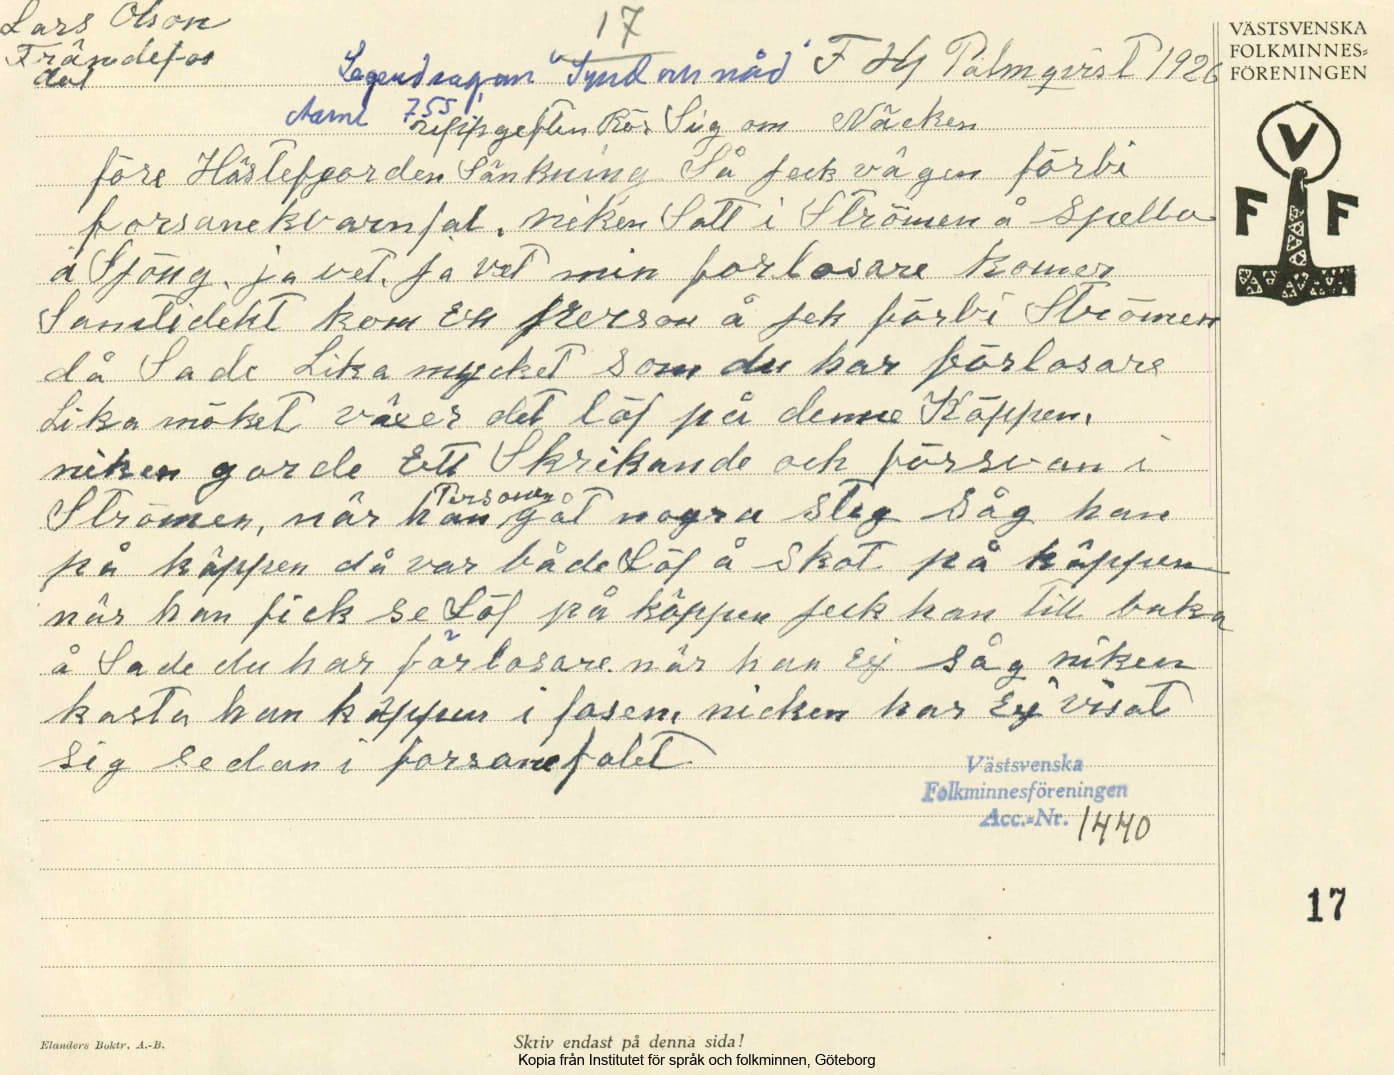 Lars Olson
Frändefos
dal
17
Legendsagan "Synd och nåd"
F Hj Palmqvist 1926
Aarne 755
uppgeften Rör Sig om Näcken
före Hästefjorden Sänkning Så feck vägen förbi
forsanekvarnfal. niken Satt i Strömen å Spella
å Sjöng. ja vet. ja vet min forlosare komer
Samtidekt kom En Person å jek förbi Strömen
då Sade Lika mycket som du har förlosare
Lika möket växer det löf på denne Käppen.
niken gorde Ett Skrikande och försvan i
Strömen, når han Personen gåt nogra steg såg han
på käppen då var både Löf å Skot på käppen
når han fick se Löf på käppen jeck han till baka
å Sade du har förlosare. når han Ej såg niken
kasta han käppen i fosen. nicken har Ej visat
sig sedan i forsanefalet
Västsvenska
Folkminnesföreningen
Acc.-Nr. 1440
VÄSTSVENSKA
FOLKMINNES-
FÖRENINGEN
V
F F
17
Elanders Boktr. A.-B.
Skriv endast på denna sida!
Kopia från Institutet för språk och folkminnen, Göteborg